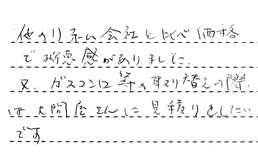 他のリフォーム会社と比べ価格
でお得感がありました。
又、ガスコンロ等の取り替えの際
は大問屋さんに見積りをしたい
です